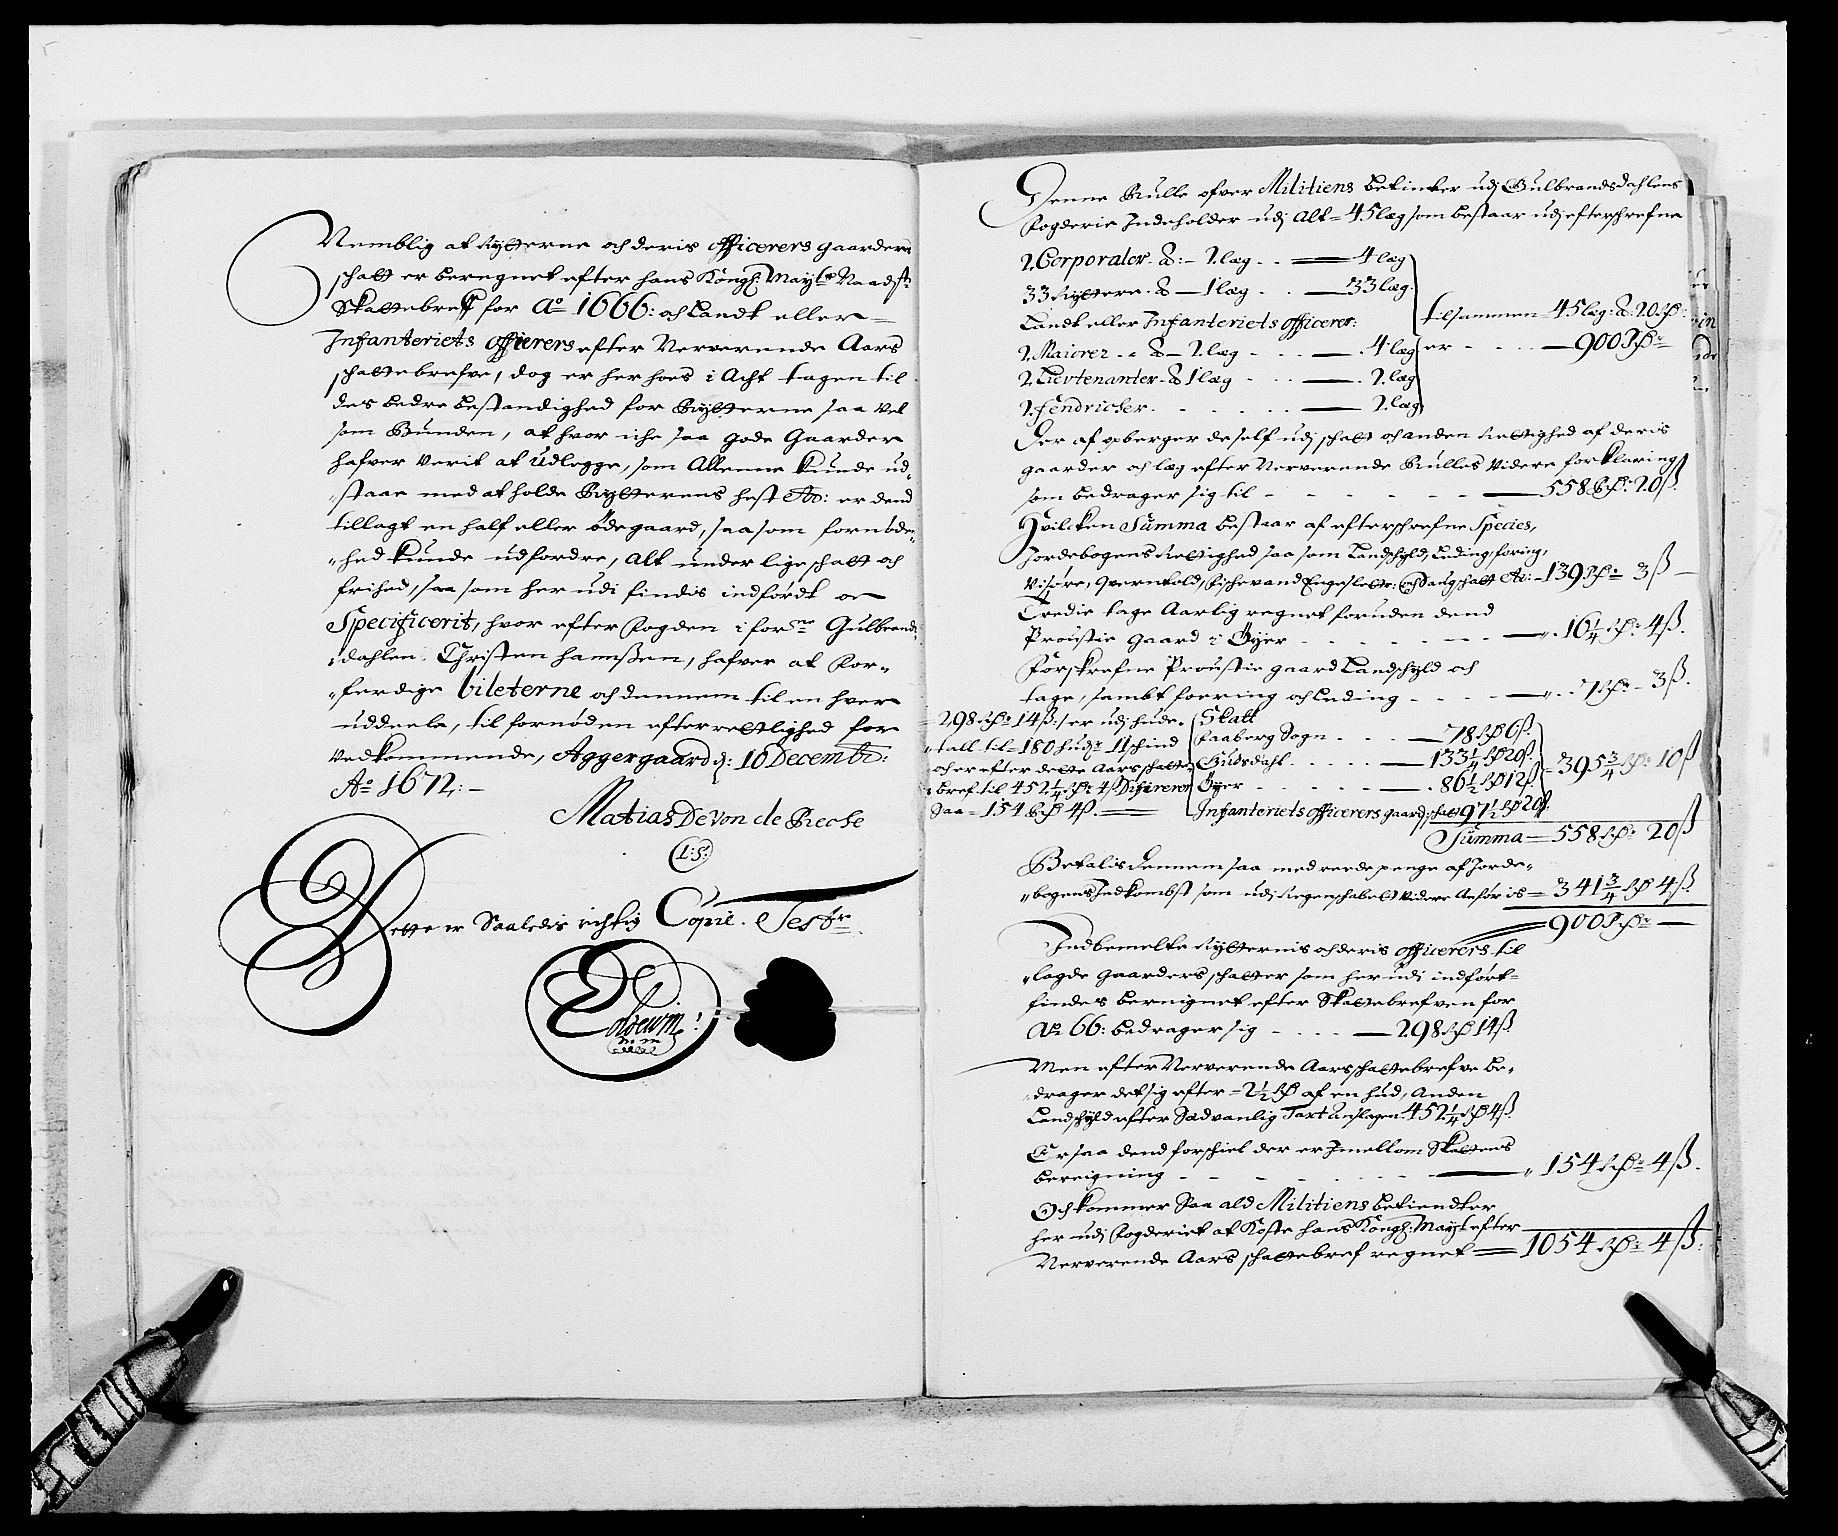 Nemblig at Rytterne och deris officerers gaarders
schatt er beregnet efter hans Kongl: May:tz Naadst:
Skattebreff for Ao 1666: och Landt eller
Infanteriets officerers efter Nerverende Aars
schattebrefve, dog er her hoes i Acht tagen til
des bedre bestandighed for Rytterne saa vel
som Bunden, at hvor iche saa gode Gaarder
hafver verit at udlegge, som Allenne kunde ud-
staae med at holde Rytterens hest &c: er dend
tillagt en half eller ødegaard, saa som fornøden-
hed kunde udfordre, alt under lige schatt och
frihed, saa som her udi findis indførdt oc
Specificerit, hvor efter fogden i for:ne Gulbrands-
dahlen Christen hanssen, hafver at for-
ferdige bileterne och dennem til en hver
uddeele, til fornøden efterretlighed for
vedkommende, Aggergaard d: 10 Decembr:
Ao 1672:
Matias De Von de Reche
L:S:
Dette er Saaledis richtig Copie. Test:r
Denne Rulle ofver Militiens betienter udj Gulbrandsdahlens
fogderie Indeholder udj Alt= 45 læg som bestaar udj efterschrefne
2 Corporaler â:– 2 læg – 4 læg
33 Ryttere â – 1 læg – 33 læg
Landt eller Infanteriets officerer:
2 Maiorer â – 2 læg – 4 læg
2 Lieutenanter â 1 læg – 2 læg
2 fendricher – 2 læg
tilsammen 45 læg: â: 20 Rd:
er – 900 Rdr
Der af opberger de self udj schatt och anden rettighed af deris
gaarder och læg efter Nerverende Rulles videre forklaring
som bedrager sig til – 558 Rd: 20 ß
Hvilcken Summa bestaar af efterschrefne Species,
Jordebogens Rettighed saa som Landschyld, Leding, foring,
Visøre, Qverntold, fischevand Engeslette: och Saugschatt &c: – 139 Rdr 3 ß
Tredie tage Aarlig regnet foruden dend
Proustie gaard i Øyer – 16 1/4 Rdr 4 ß
forskrefne Proustie gaard Landschyld och
tage, sambt foering och Leding – 7 Rdr 3 ß
298 Rdr 14 ß: er udj hude-
tall til= 180 hudr 11 schind
och er efter dette Aars schatte-
bref til 452 1/4 Rdr 4 ß Diferener
Saa = 154 Rd 4 ß
Skatt
faaberg Sogn – 78 Rd 6 ß
Gudsdahl – 133 1/4 Rd 20 ß
Øyer – 86 1/2 Rd 12 ß
Infanteriets officerers gaard schatt 97 1/2 Rd 20 ß
395 3/4 Rdr 10 ß
Summa = 558 Rdr 20 ß
Betalis dennem saa med reede penge af Jorde-
bogens Indkombst som udj Regenschabet videre Anføris = 341 3/4 Rd 4 ß
900 Rdr
Indbemelte Rytternis och deris officerers til
lagde gaarders schatter som her udj indført
findes bereignet efter Skattebrefven for
Ao 66: bedrager sig – 298 Rd 14 ß
Men efter Nerverende Aars schattebrefve be-
drager det sig efter = 2 1/2 Rd af en hud, Anden
Landschyld efter Sædvanlig Taxt anslagen 452 1/4 Rd 4 ß
Er saa dend forschiel der er Imellom Skattens
bereigning – 154 Rdr 4 ß
Och kommer Saa ald Militiens betiendter
her udj fogderiet at Koste hans Kongl: Mayt efter
Nerverende Aars schattebref regnet = 1054 Rdr 4 ß